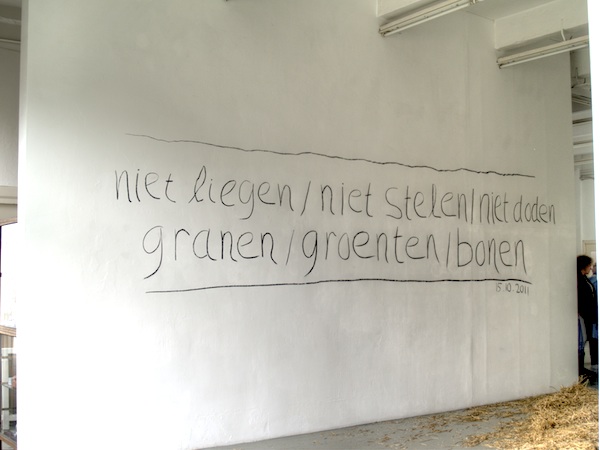 niet liegen/niet stelen/niet doden
granen/groenten/bonen
15.10.2011